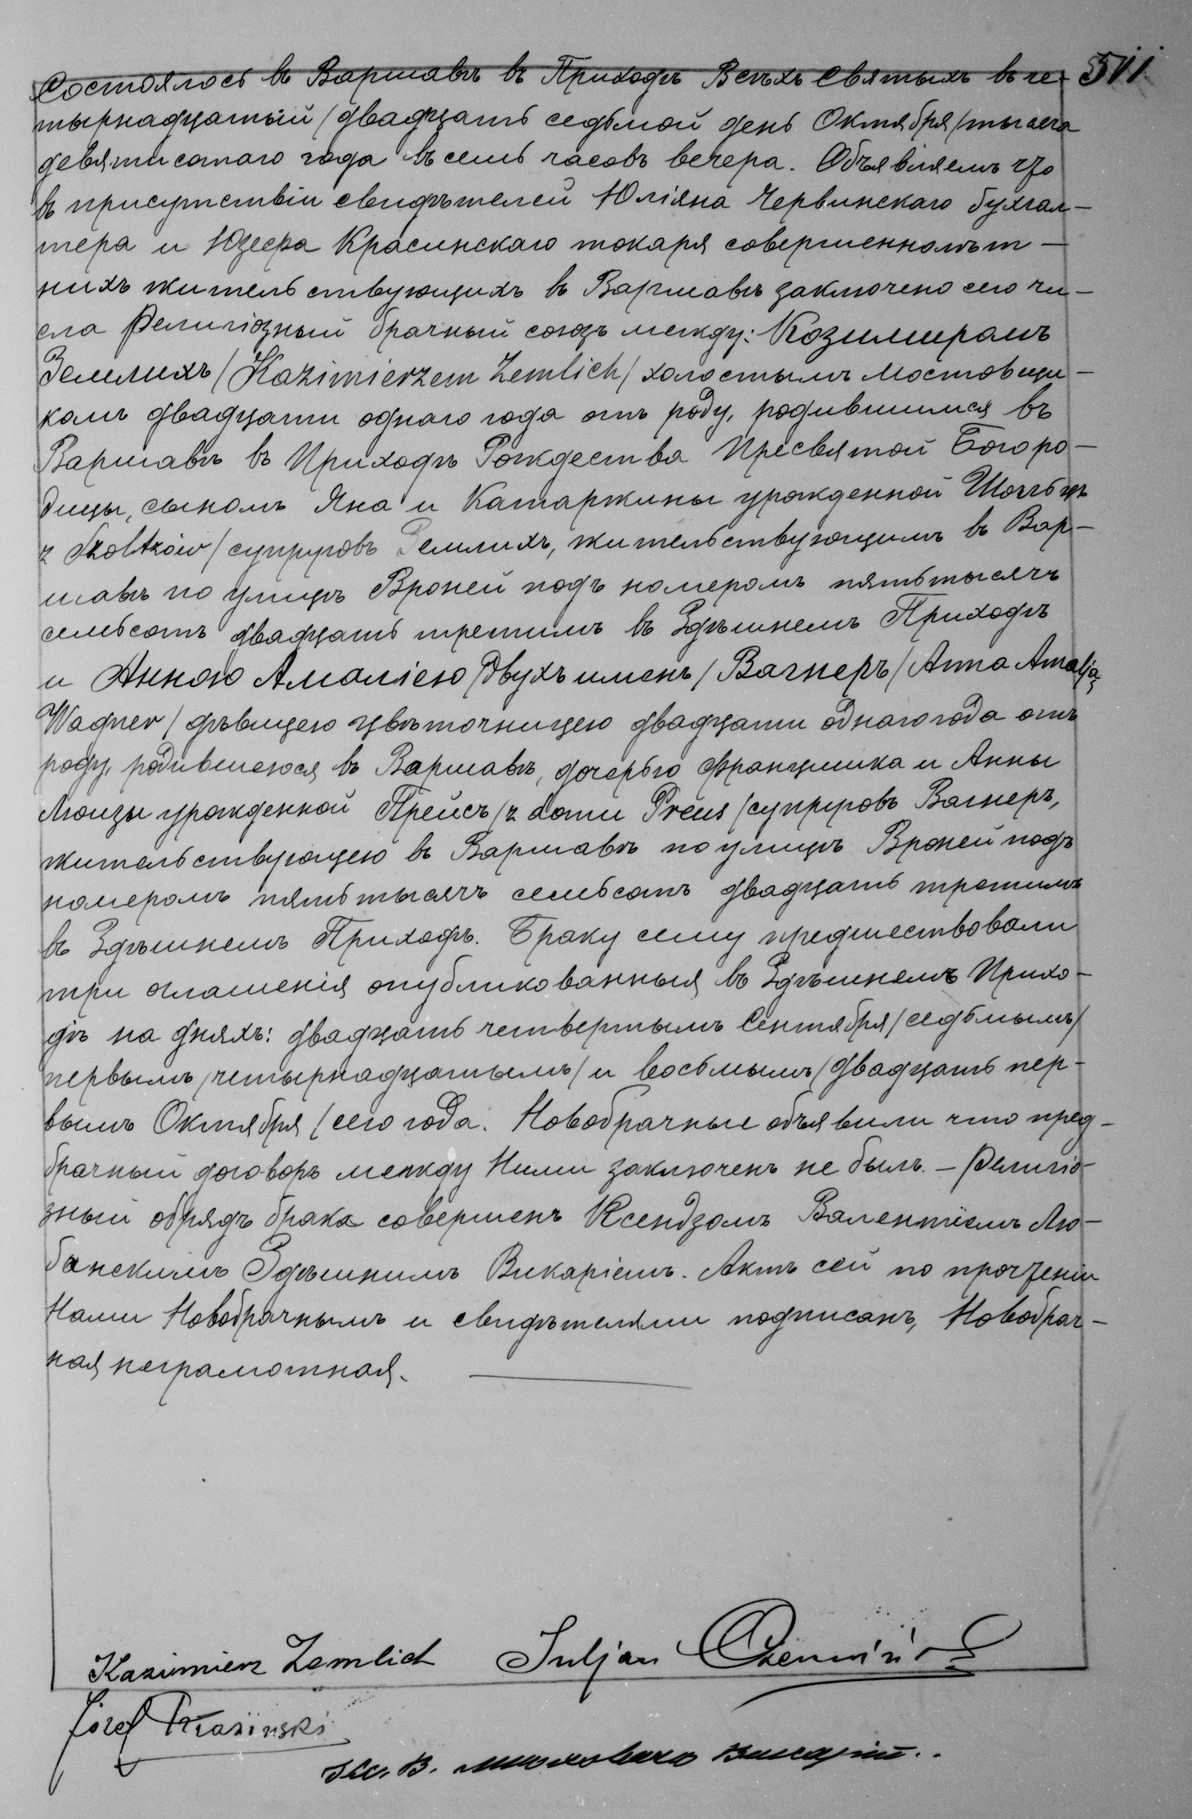 Состоялось въ Варшавѣ въ Приходѣ Всѣхъ Святыхъ въ че- 511
тырнадцатый /двадцать седьмой день Октября/ тысяча
девятисотаго года въ семь часовъ вечера. Объявляемъ что
въ присутствіи свидѣтелей Юліяна Червинскаго бухгал-
тера и Юзефа Красинскаго токаря совершеннолѣт-
нихъ жительствующихъ въ Варшавѣ заключено сего чи-
сла Религіозный брачный союзъ между: Козимиромъ
Землихъ /Kazimierzem Zemlich/ холостымъ мостовщи-
комъ двадцати одного года отъ роду, родившимся въ
Варшавѣ въ Приходѣ Рождества Пресвятой Богоро-
дицы, сыномъ Яна и Катаржины урожденной
z Szoltków/ супруговъ Землихъ, жительствующимъ въ Вар-
шавѣ по улицѣ Вроней подъ номеромъ пять тысячъ
семьсотъ двадцать третимъ въ Здѣшнемъ Приходѣ
и Анною Амаліею /двухъ именъ/ Вагнеръ /Anna Amalja
Wagner/ дѣвицею цвѣточницею двадцати одного года отъ
роду, родившеюся въ Варшавѣ, дочерью Францишка и Анны
Люизы урожденной Прейсъ /z domu Preus/ супруговъ Вагнеръ,
жительствующею въ Варшавѣ по улицѣ Вроней подъ
номеромъ пять тысячъ семьсотъ двадцать третимъ
въ Здѣшнемъ Приходѣ. Браку сему предшествовали
три оглашенія опубликованныя въ Здѣшнемъ Прихо-
дѣ на дняхъ: двадцать четвертымъ Сентября /седьмымъ/
первымъ /четырнадцатымъ/ и восьмымъ /двадцать пер-
вымъ Октября/ сего года. Новобрачные объявили что пред-
брачный договоръ между Ними заключенъ не былъ. - Религіо-
зный обрядъ брака совершенъ Ксендзомъ Валентіемъ Лю-
банскимъ Здѣшнимъ Викаріемъ. Актъ сей по прочтеніи
Нами Новобрачнымъ и свидѣтелями подписанъ, Новобрач-
ная неграмотная.
Kazimierz Zemlich Juljan Czerwiński
Józef Krasiński
Кс. В.